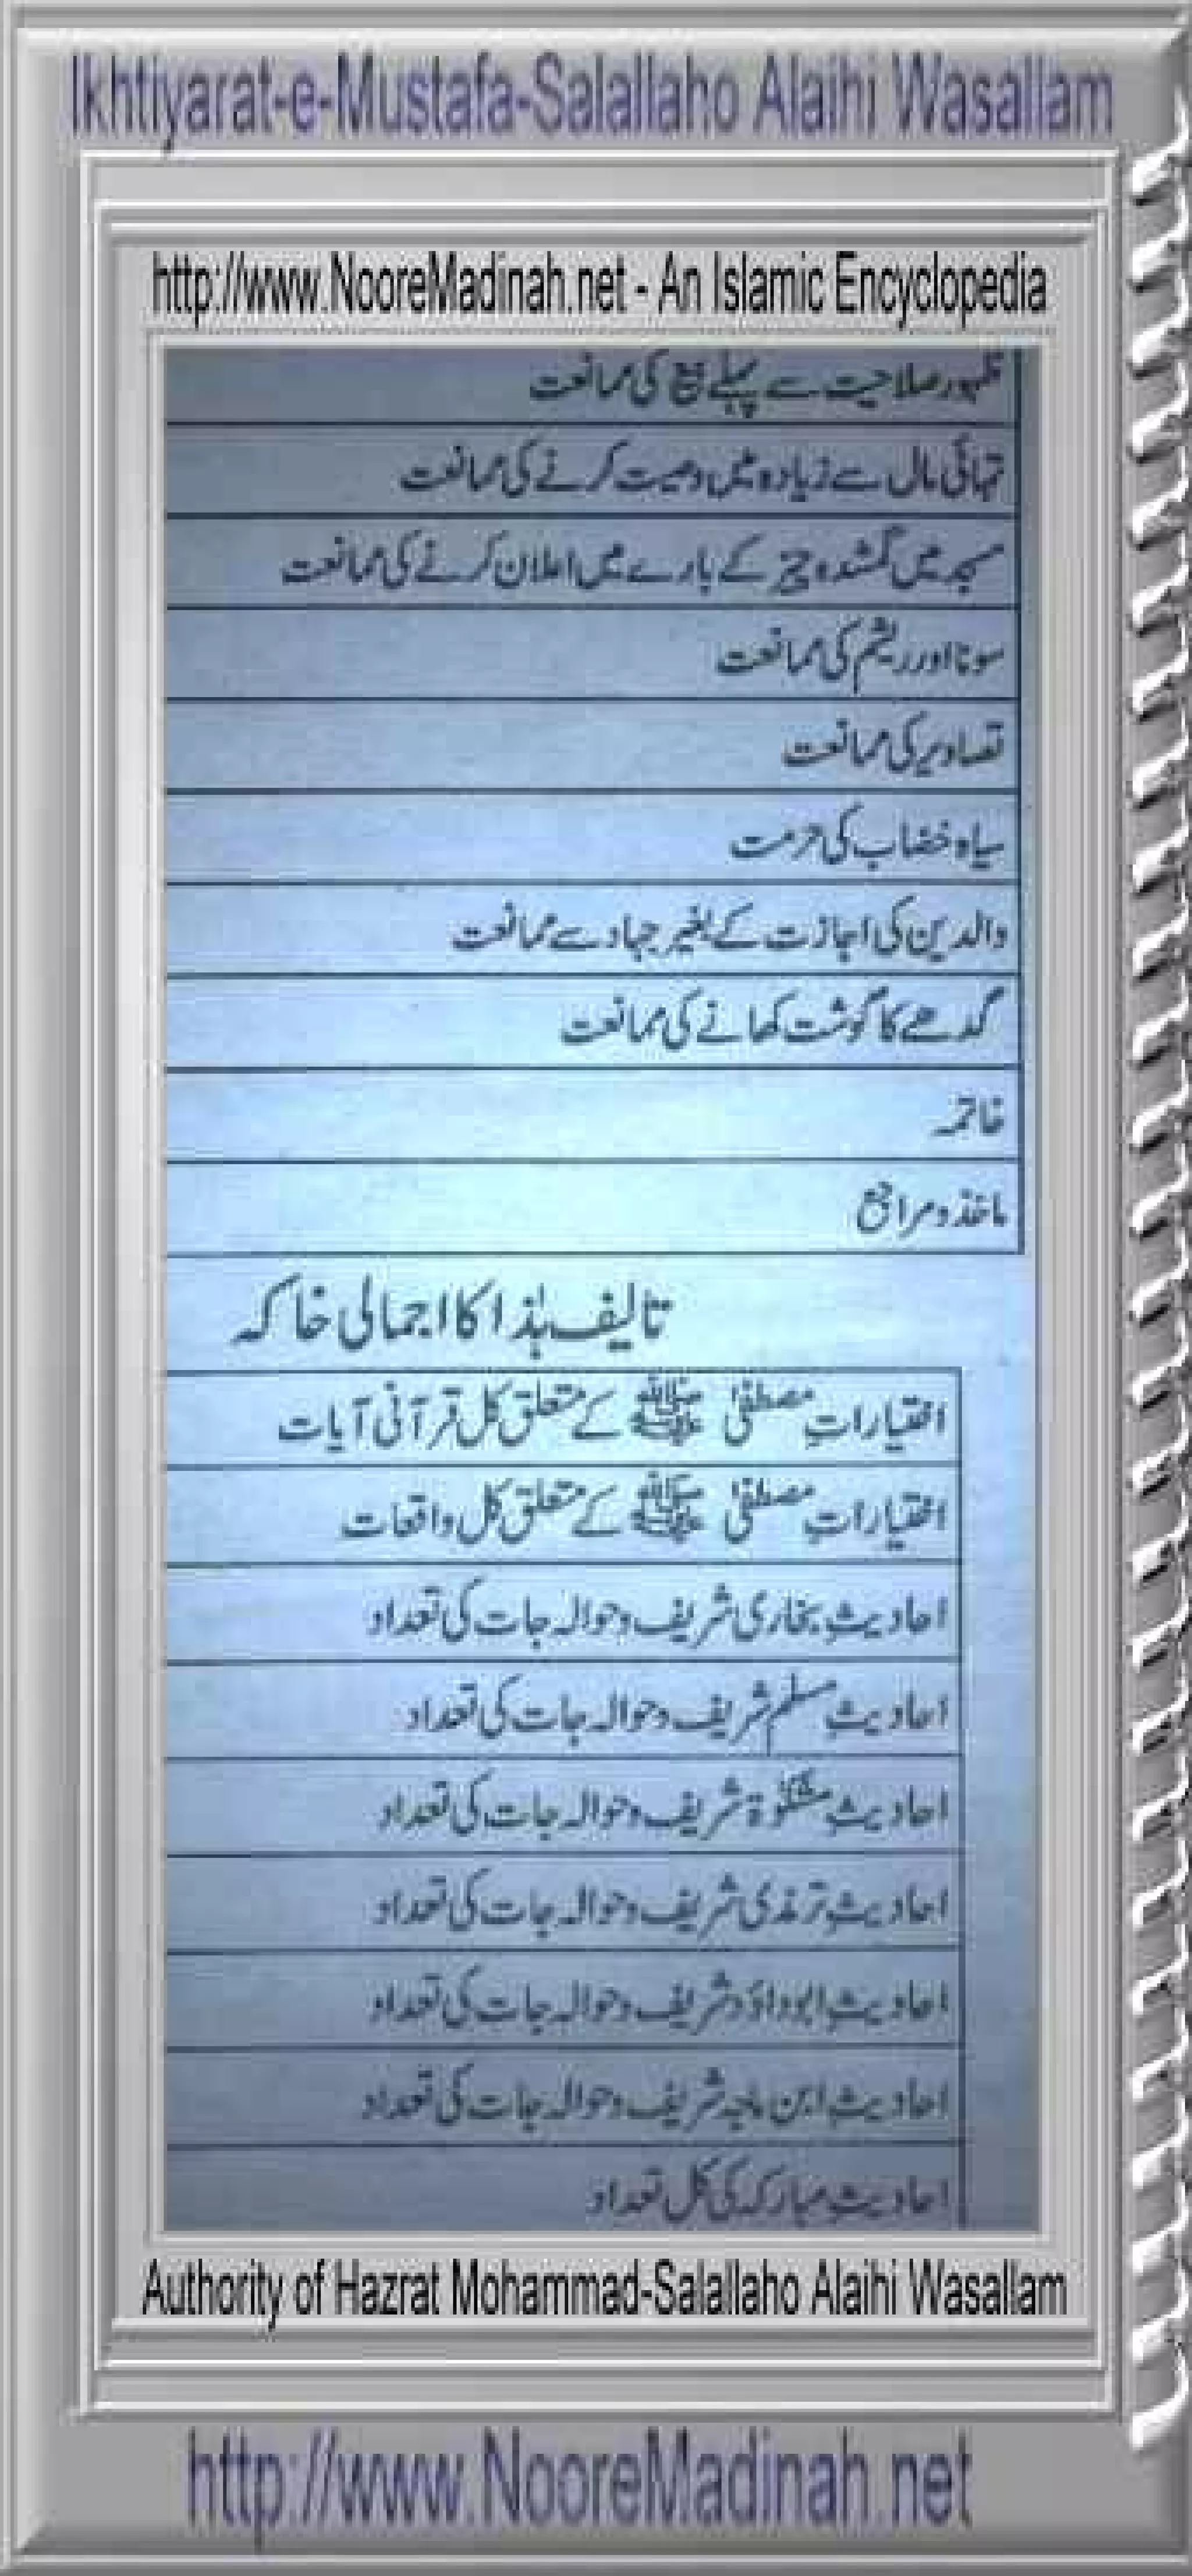 Ikhtiyarat-e-Mustafa-Salallaho Alaihi Wasallam
http://www.NooreMadinah.net - An Islamic Encyclopedia
ظہور صلاحیت سے پہلے بیع کی ممانعت
تہائی مال سے زیادہ میں وصیت کرنے کی ممانعت
مسجد میں گمشدہ چیز کے بارے میں اعلان کرنے کی ممانعت
سونا اور ریشم کی ممانعت
تصاویر کی ممانعت
سیاہ خضاب کی حرمت
والدین کی اجازت کے بغیر جہاد سے ممانعت
گدھے کا گوشت کھانے کی ممانعت
خاتمہ
ماخذ و مراجع
تالیف ہٰذا کا اجمالی خاکہ
اختیاراتِ مصطفیٰ ﷺ کے متعلق کل قرآنی آیات
اختیاراتِ مصطفیٰ ﷺ کے متعلق کل واقعات
احادیثِ بخاری شریف و حوالہ جات کی تعداد
احادیثِ مسلم شریف و حوالہ جات کی تعداد
احادیثِ مشکوٰۃ شریف و حوالہ جات کی تعداد
احادیثِ ترمذی شریف و حوالہ جات کی تعداد
احادیثِ ابوداؤد شریف و حوالہ جات کی تعداد
احادیثِ ابن ماجہ شریف و حوالہ جات کی تعداد
احادیثِ مبارکہ کی کل تعداد
Authority of Hazrat Mohammad-Salallaho Alaihi Wasallam
http://www.NooreMadinah.net